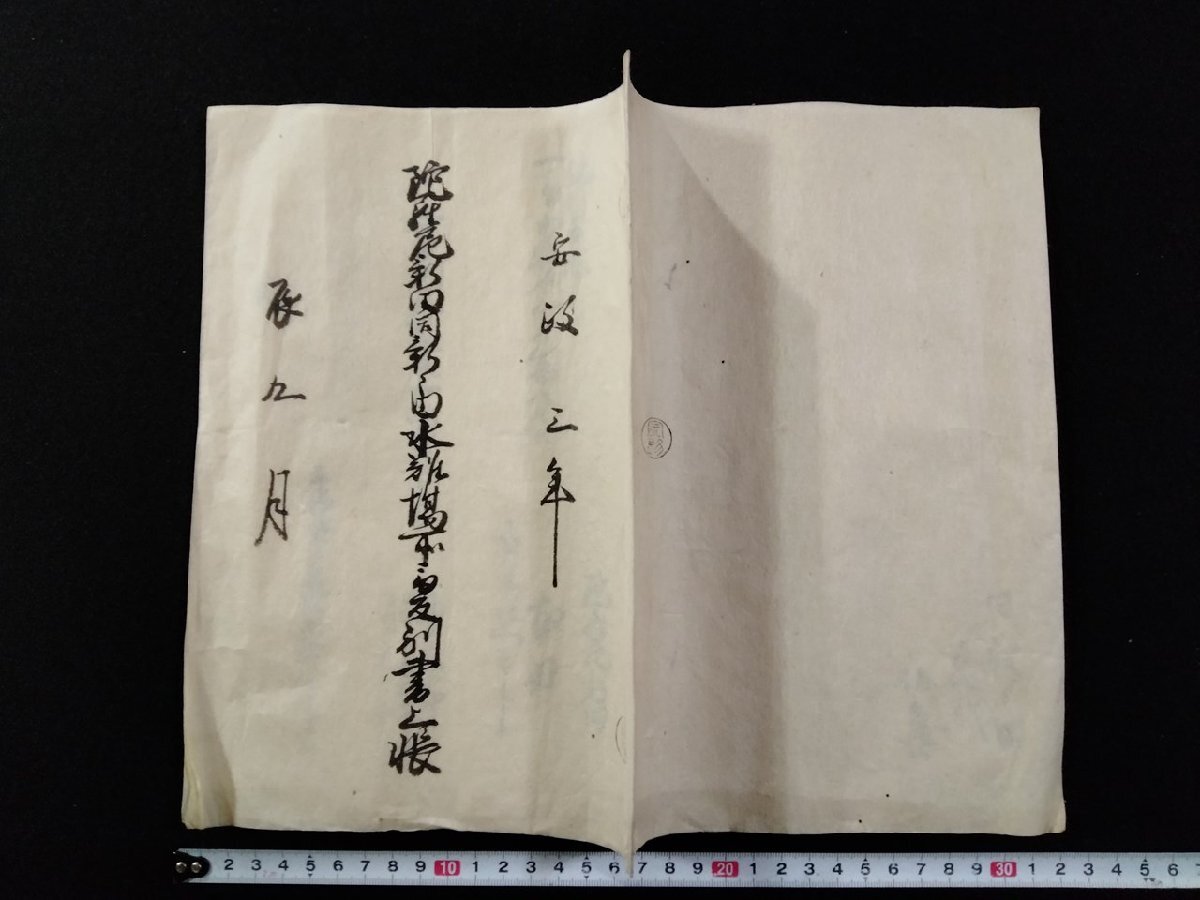 安政三年
新田同新田水難場所受別書上帳
辰九月
2 3 4 5 6 7 8 9 10 1 2 3 4 5 6 7 8 9 20 1 2 3 4 5 6 7 8 9 30 1 2 3 4 5 6